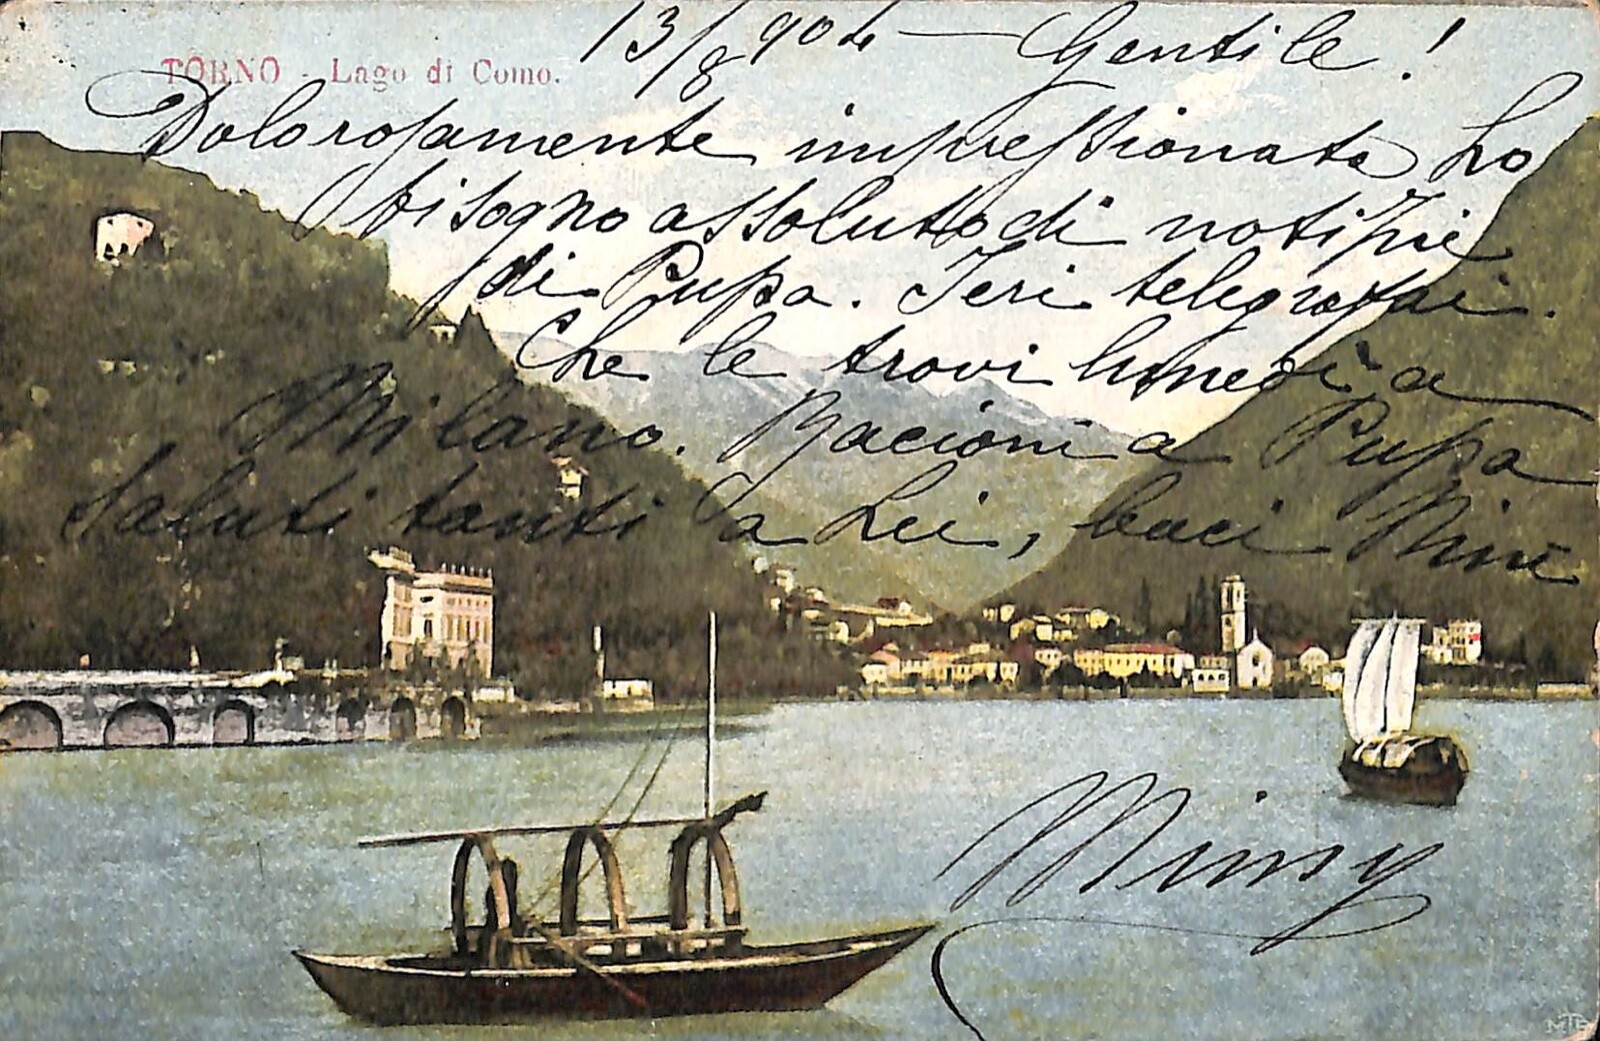 13/8 904 — Gentile!
TORNO - Lago di Como.
Dolorosamente impressionata ho
bisogno assoluto di notizie
di Pupa. Ieri telegrafai.
Che le trovi lunedì a
Milano. Bacioni a Pupa
saluti tanti a Lei, baci
Mimy
MTB